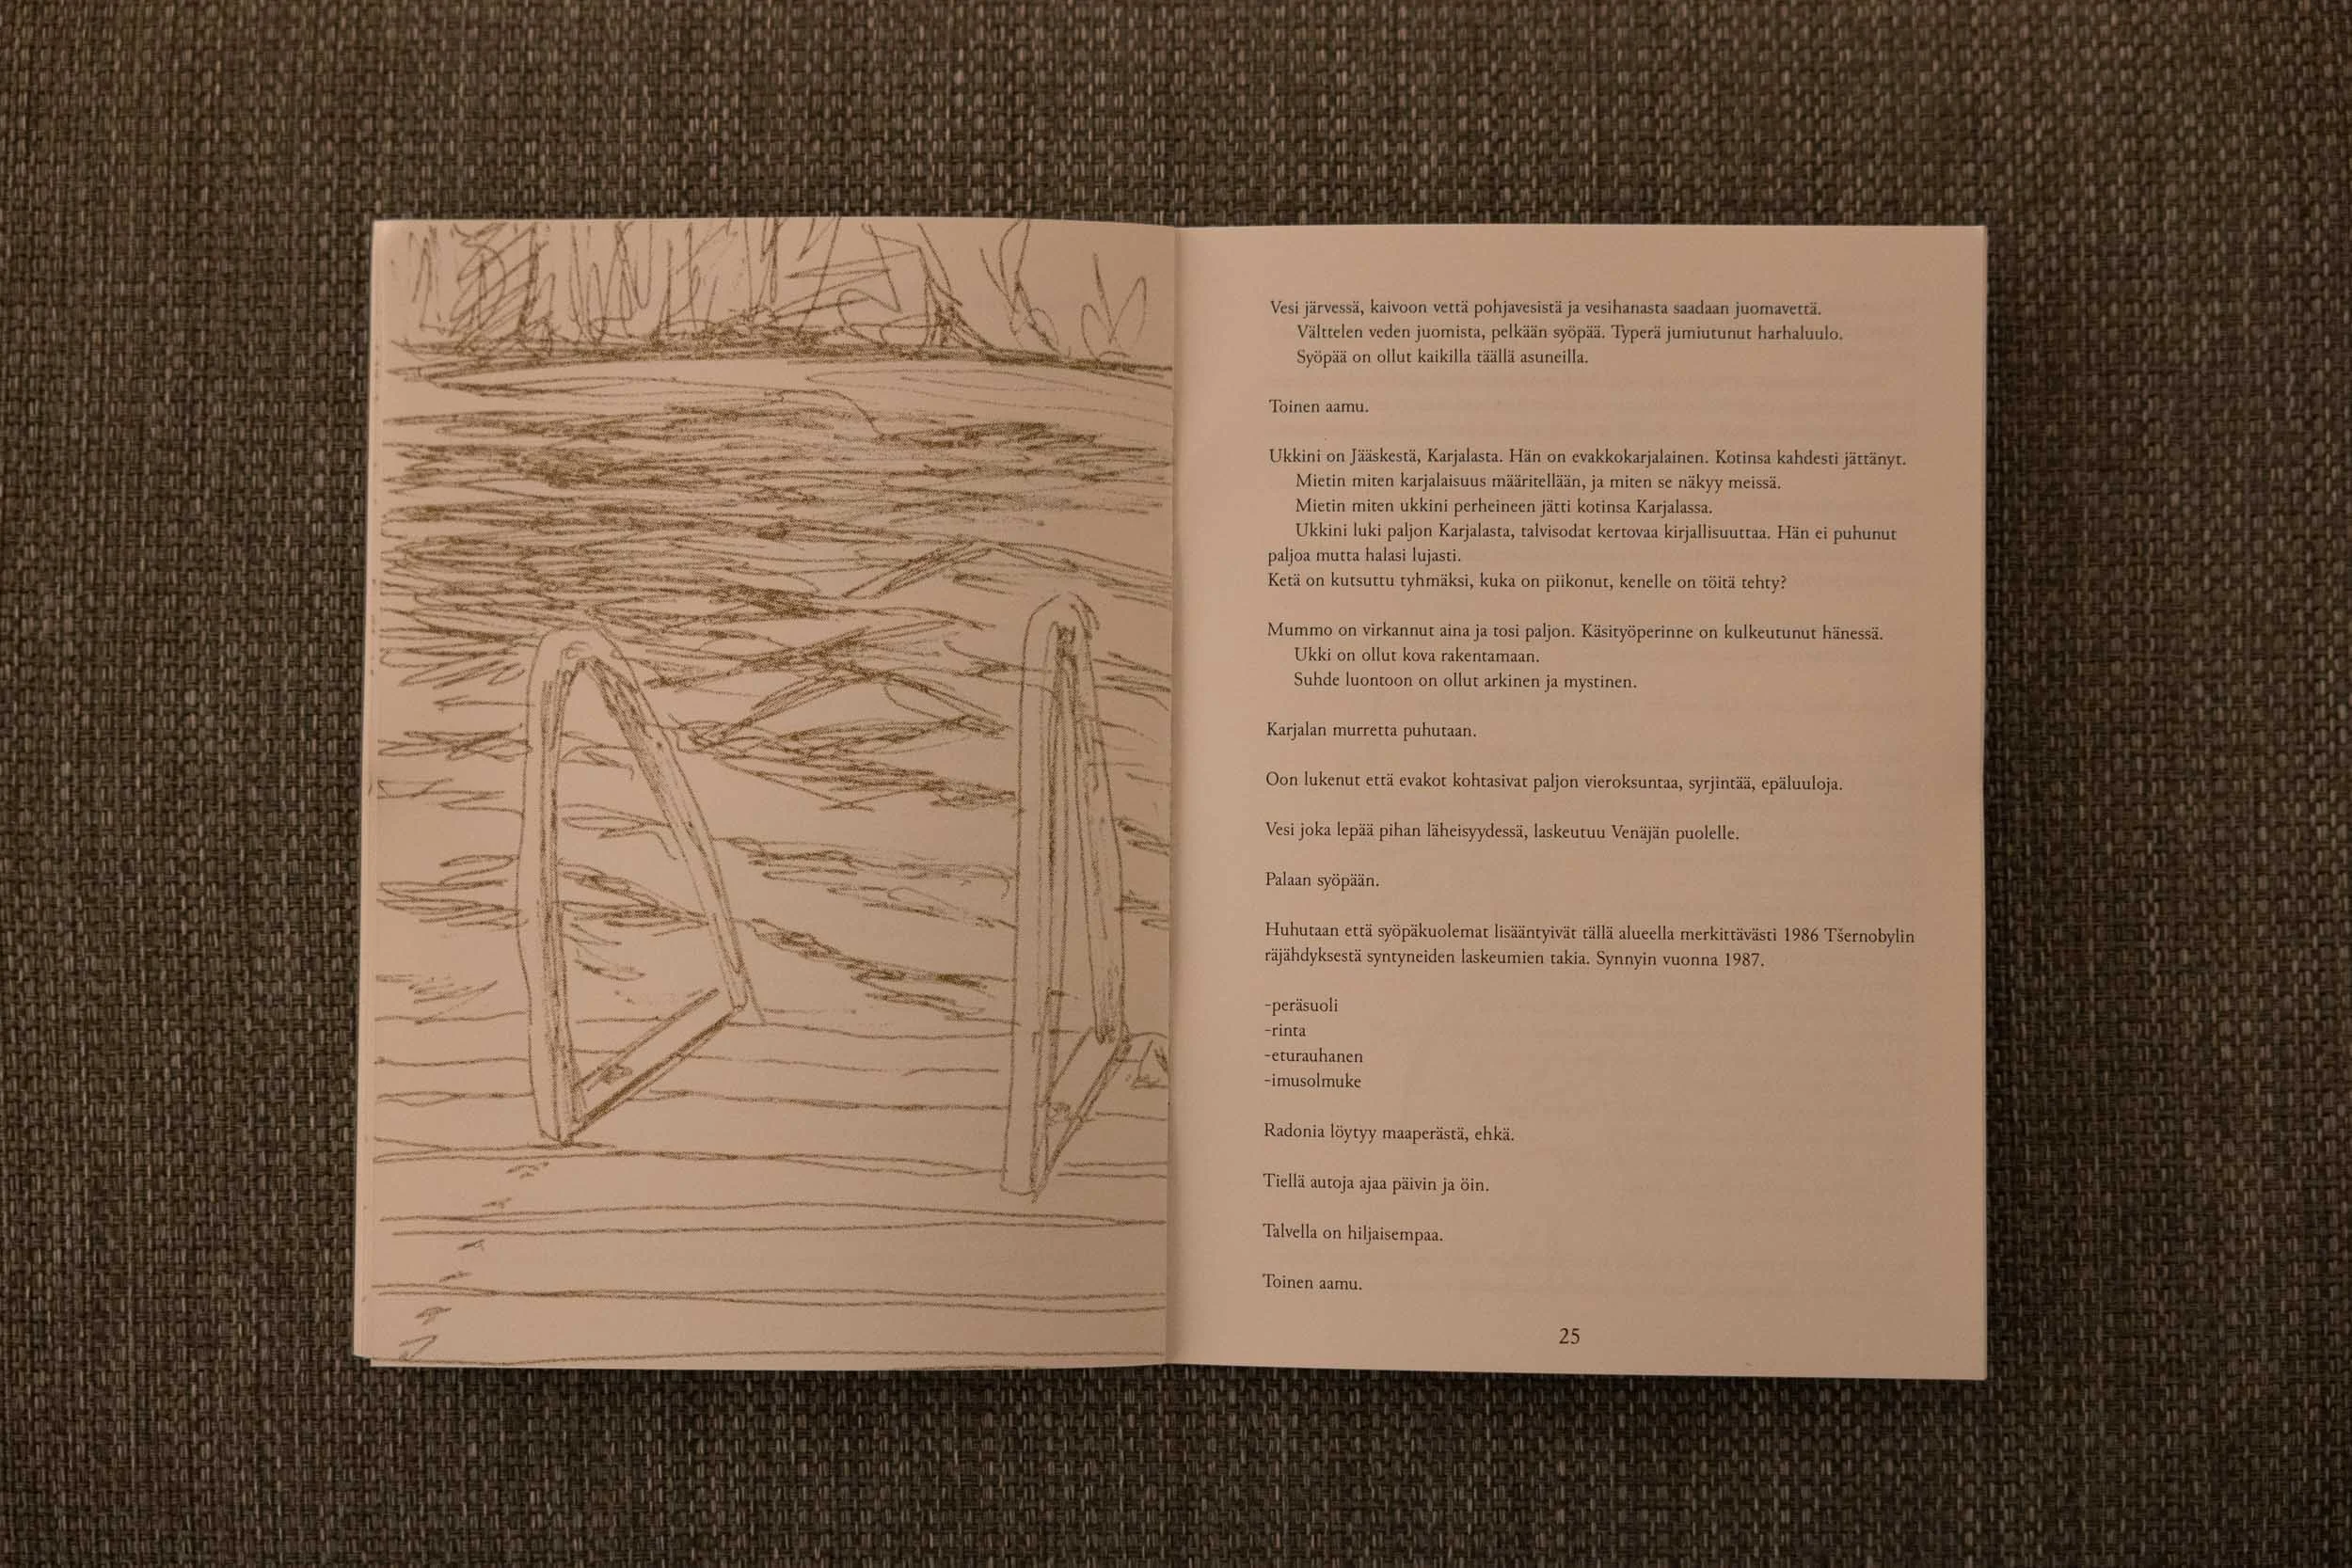 Vesi järvessä, kaivoon vettä pohjavesistä ja vesihanasta saadaan juomavettä.
Välttelen veden juomista, pelkään syöpää. Typerä jumiutunut harhaluulo.
Syöpää on ollut kaikilla täällä asuneilla.
Toinen aamu.
Ukkini on Jääskestä, Karjalasta. Hän on evakkokarjalainen. Kotinsa kahdesti jättänyt.
Mietin miten karjalaisuus määritellään, ja miten se näkyy meissä.
Mietin miten ukkini perheineen jätti kotinsa Karjalassa.
Ukkini luki paljon Karjalasta, talvisodat kertovaa kirjallisuuttaa. Hän ei puhunut
paljoa mutta halasi lujasti.
Ketä on kutsuttu tyhmäksi, kuka on piikonut, kenelle on töitä tehty?
Mummo on virkannut aina ja tosi paljon. Käsityöperinne on kulkeutunut hänessä.
Ukki on ollut kova rakentamaan.
Suhde luontoon on ollut arkinen ja mystinen.
Karjalan murretta puhutaan.
Oon lukenut että evakot kohtasivat paljon vieroksuntaa, syrjintää, epäluuloja.
Vesi joka lepää pihan läheisyydessä, laskeutuu Venäjän puolelle.
Palaan syöpään.
Huhutaan että syöpäkuolemat lisääntyivät tällä alueella merkittävästi 1986 Tšernobylin
räjähdyksestä syntyneiden laskeumien takia. Synnyin vuonna 1987.
-peräsuoli
-rinta
-eturauhanen
-imusolmuke
Radonia löytyy maaperästä, ehkä.
Tiellä autoja ajaa päivin ja öin.
Talvella on hiljaisempaa.
Toinen aamu.
25